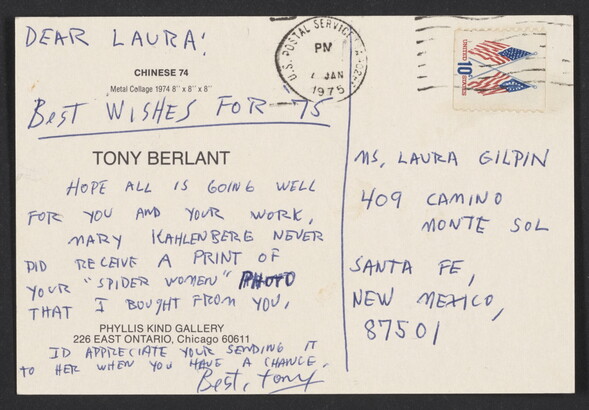 DEAR LAURA!
CHINESE 74
Metal Collage 1974 8" x 8" x 8"
BEST WISHES FOR 75
TONY BERLANT
HOPE ALL IS GOING WELL
FOR YOU AND YOUR WORK.
MARY KAHLENBERG NEVER
DID RECEIVE A PRINT OF
YOUR "SPIDER WOMEN" PHOTO
THAT I BOUGHT FROM YOU,
PHYLLIS KIND GALLERY
226 EAST ONTARIO, Chicago 60611
ID APPRECIATE YOUR SENDING IT
TO HER WHEN YOU HAVE A CHANCE.
Best, Tony
U.S. POSTAL SERVICE
PM
JAN
1975
UNITED
10c
MS. LAURA GILPIN
409 CAMINO
MONTE SOL
SANTA FE,
NEW MEXICO,
87501